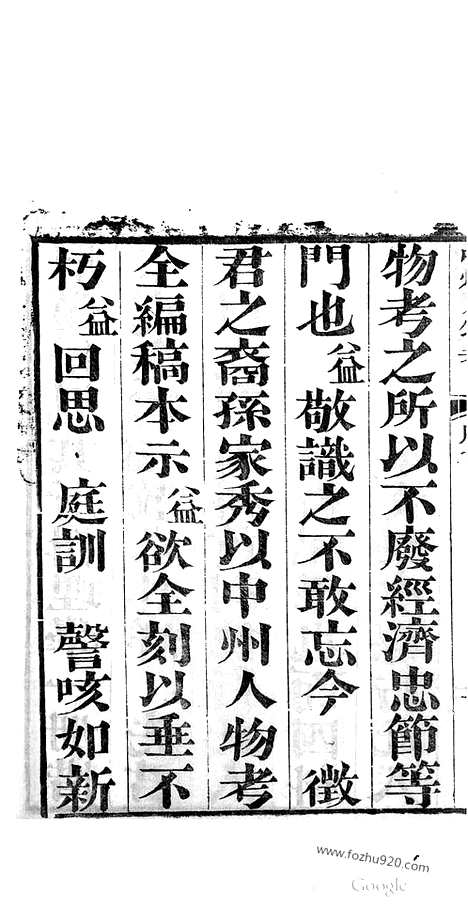 物考之所以不廢經濟忠節等
門也益敬識之不敢忘今 徵
君之裔孫家秀以中州人物考
全編稿本示益欲全刻以垂不
朽益回思 庭訓 謦咳如新
www.fozhu920.com
Google